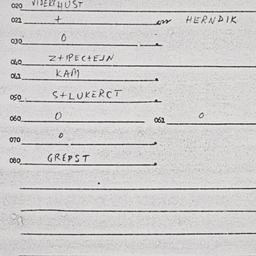 020 VIDERTHUST
021 + en HERNDIK
030 0
040 Z+PECTEJN
041 KAM
050 S+LUKERCT
060 0 061 0
070 0
080 GREPST